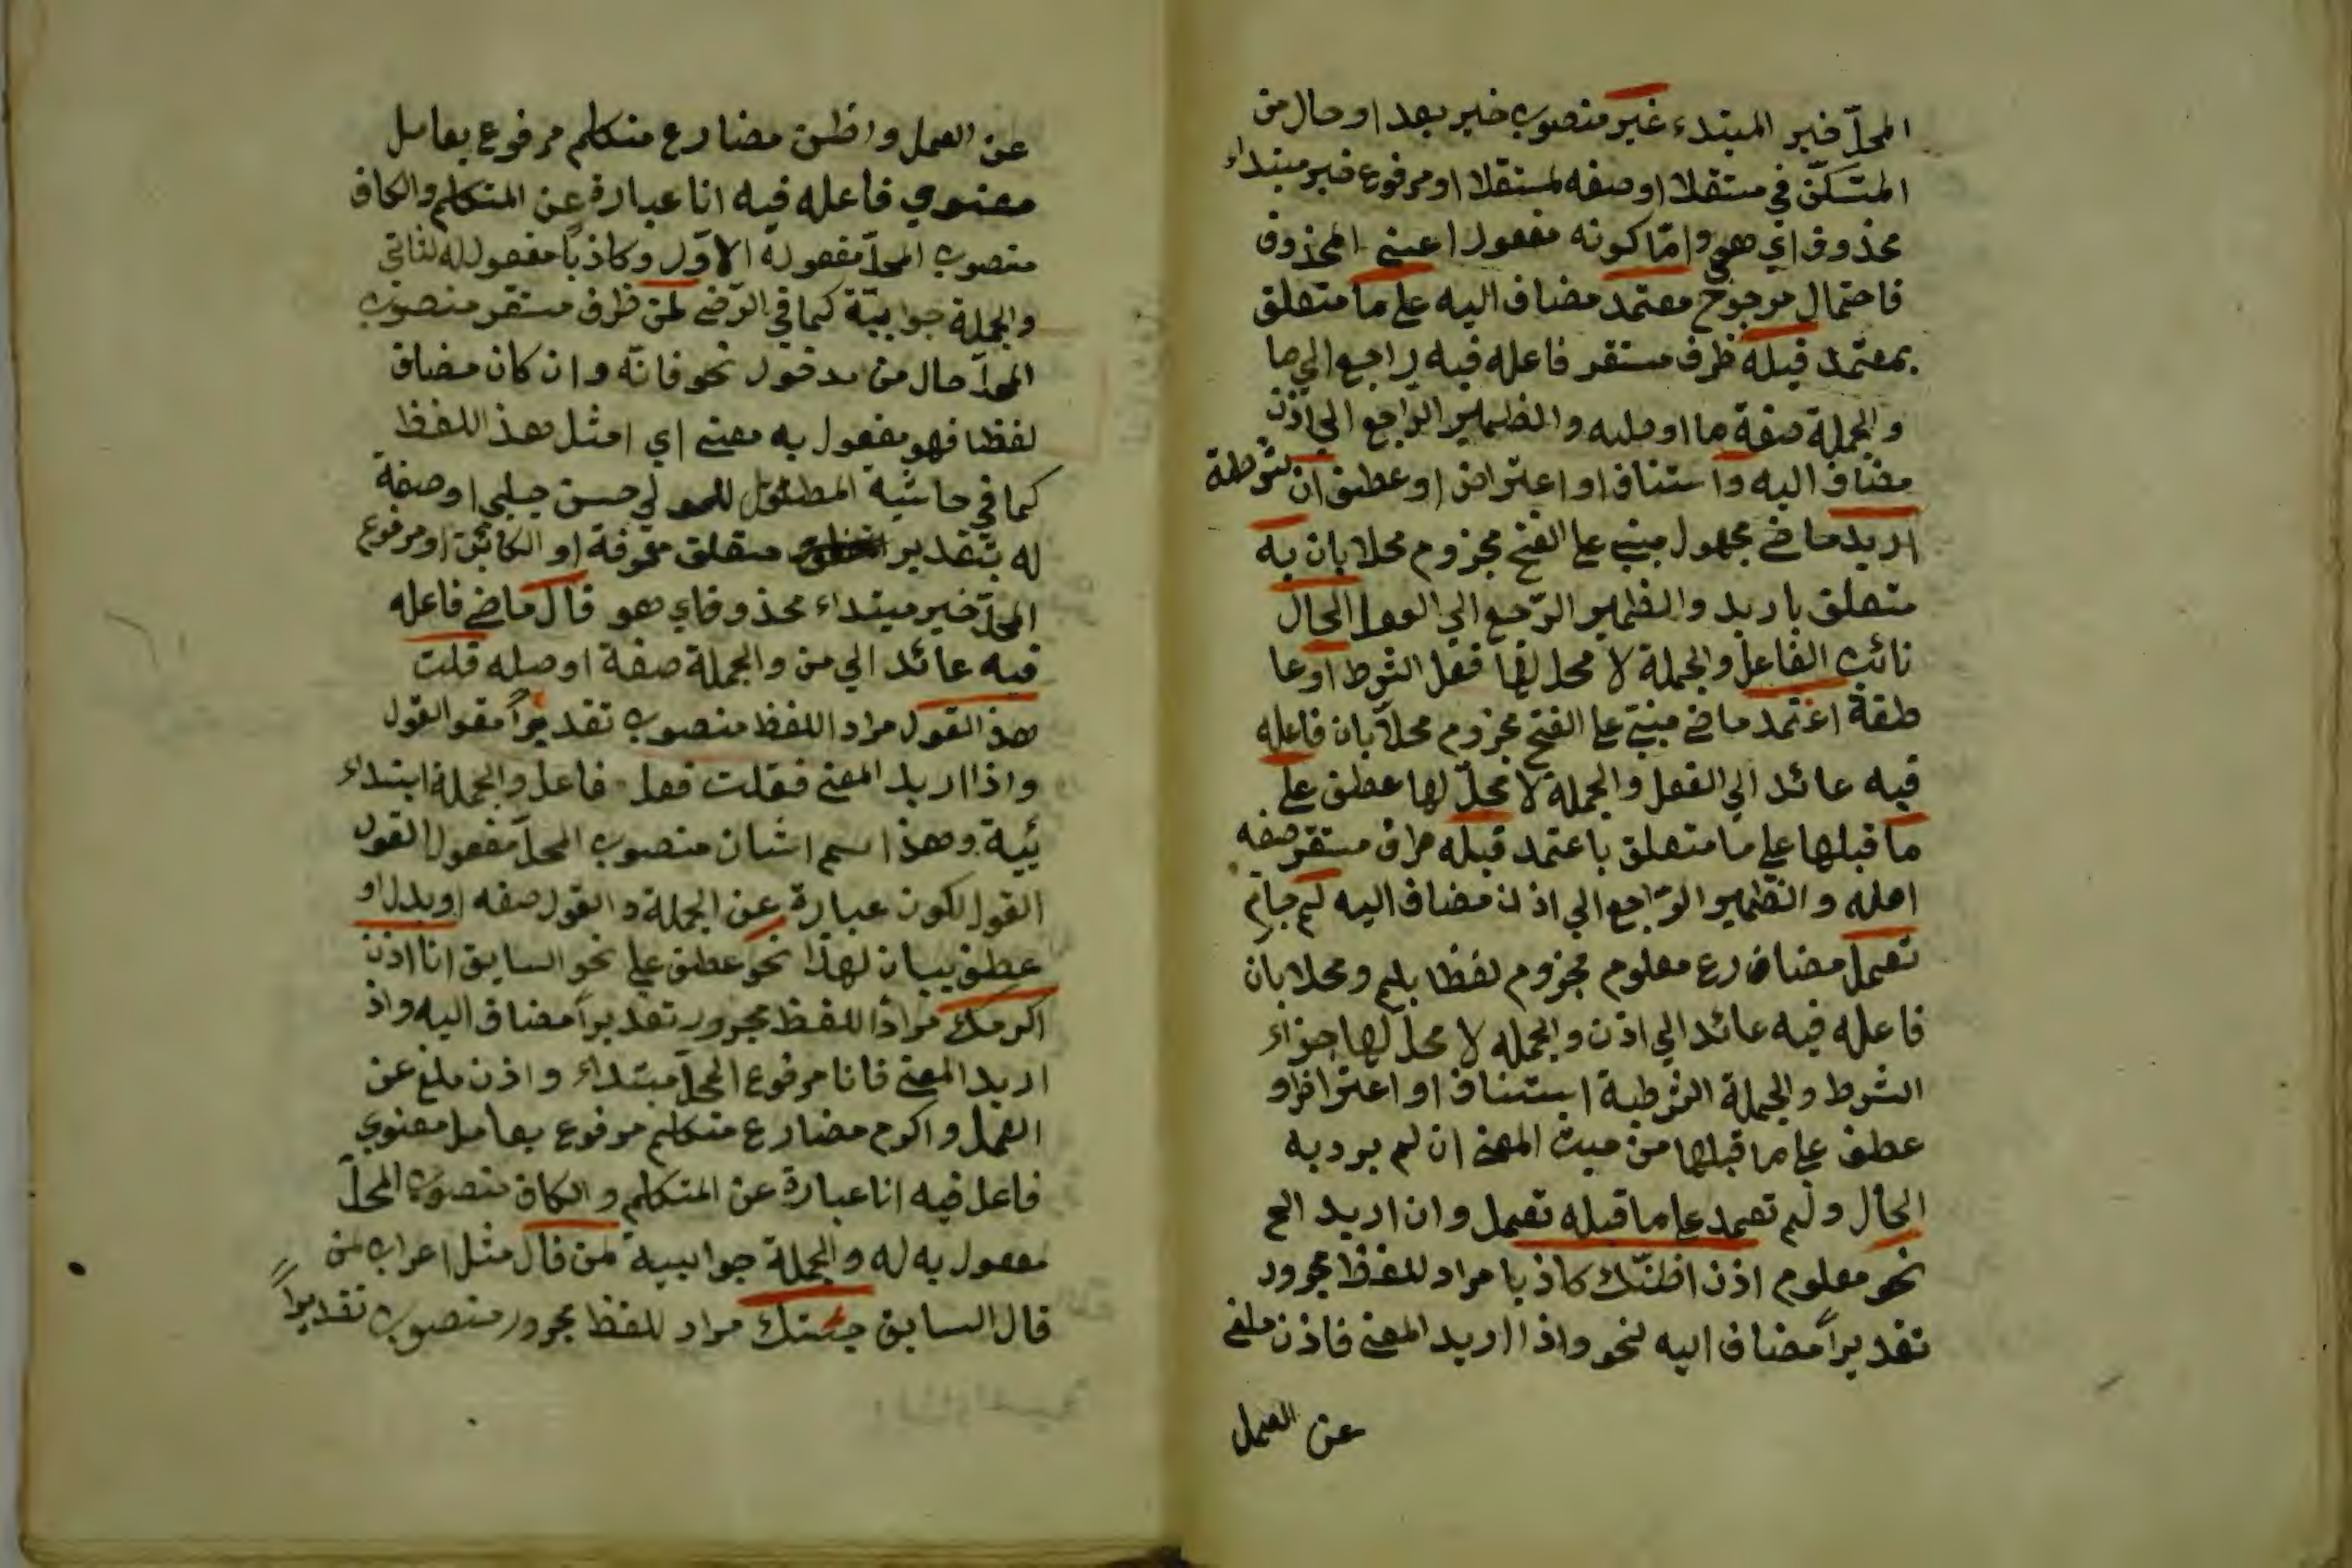 المحلّ خبر المبتدء غير منصوب خبر بعد او حال من
المتسكّن في مستقلا او صفه لمستقلا او مرفوع خبر مبتداء
محذوف اي هو وامّا كونه مفعول اعني المحذوف
فاحتمال مرجوح معتمد مضاف اليه على ما متعلق
بمعتمد قبله ظرف مستقر فاعله فيه راجع الي ما
والجملة صفة ما او صليه والضمير الراجع الي اذن
مضاف اليه واستناف او اعتراض او عطف ان شرطة
اريد ماضي مجهول مبني على الفتح مجزوم محلا بان به
متعلق باريد والضمير الرّجع الي الحال
نائب الفاعل والجملة لا محل لها فعل الشرط او عا
طفة اعتمد ماضي مبنيّ على الفتح مجزوم محلّا بان فاعله
فيه عائد الي الفعل والجملة لا محلّ لها عطف على
ما قبلها على ما متعلق باعتمد قبله مستقر صفه
اصله والضمير الرّاجع الي اذن مضاف اليه لم جازم
تعمل مضارع معلوم مجزوم لفظا بلم ومحلا بان
فاعله فيه عائد الي اذن والجمله لا محل لها جزاء
الشرط والجملة الشرطية استناف او اعتراض او
عطف على ما قبلها من حيث المعنى ان لم يرد به
الحال ولم تعمد على ما قبله تعمل وان اريد الح
نحو معلوم اذن اظنّك كاذبا مراد للفظ مجرور
تقديراً مضاف اليه لنحو واذا اريد المعنى فاذن ملغى
عن العمل
عن العمل واظن مضارع متكلم مرفوع بعامل
معنوي فاعله فيه انا عبارة عن المتكلم والكاف
منصوب المحلّ مفعوله الاوّل وكاذبا مفعول له لثاني
والجملة جوابيّة كما في الرّضي لمن ظرف مستقر منصوب
المحلّ حال من مدخول نحو فانّه وان كان مضاف
لفظا فهو مفعول به معنى اي امثل هذ اللفظ
كما في حاشية المطوّل للمولي حسن چلبي او صفة
له بتقدير متعلق معرفة او الكائن او مرفوع
المحلّ خبر مبتداء محذوف اي هو قال ماضي فاعله
فيه عائد الي من والجملة صفة او صله قلت
هذ القول مراد اللفظ منصوب تقديراً مقو القول
واذا اريد المعنى فقلت فعل فاعل والجملة ابتداء
ئية وهذا اسم اشان منصوب المحلّ مفعول القول
القول لكون عبارة عن الجملة والقول صفه او بدل او
عطف بيان لهذا نحو عطف على نحو السابق انا اذن
اكرمك مراد اللفظ مجرور تقديراً مضاف اليه واذ
اريد المعنى فانا مرفوع المحلّ مبتداء واذن ملغ عن
العمل واكرم مضارع متكلم مرفوع بعامل معنوي
فاعل فيه انا عبارة عن المتكلم والكاف منصوب المحلّ
مفعول به له والجملة جوابيية لمن قال مثل اعراب لمن
قال السابق جئتك مراد للفظ مجرور منصوب تقديراً